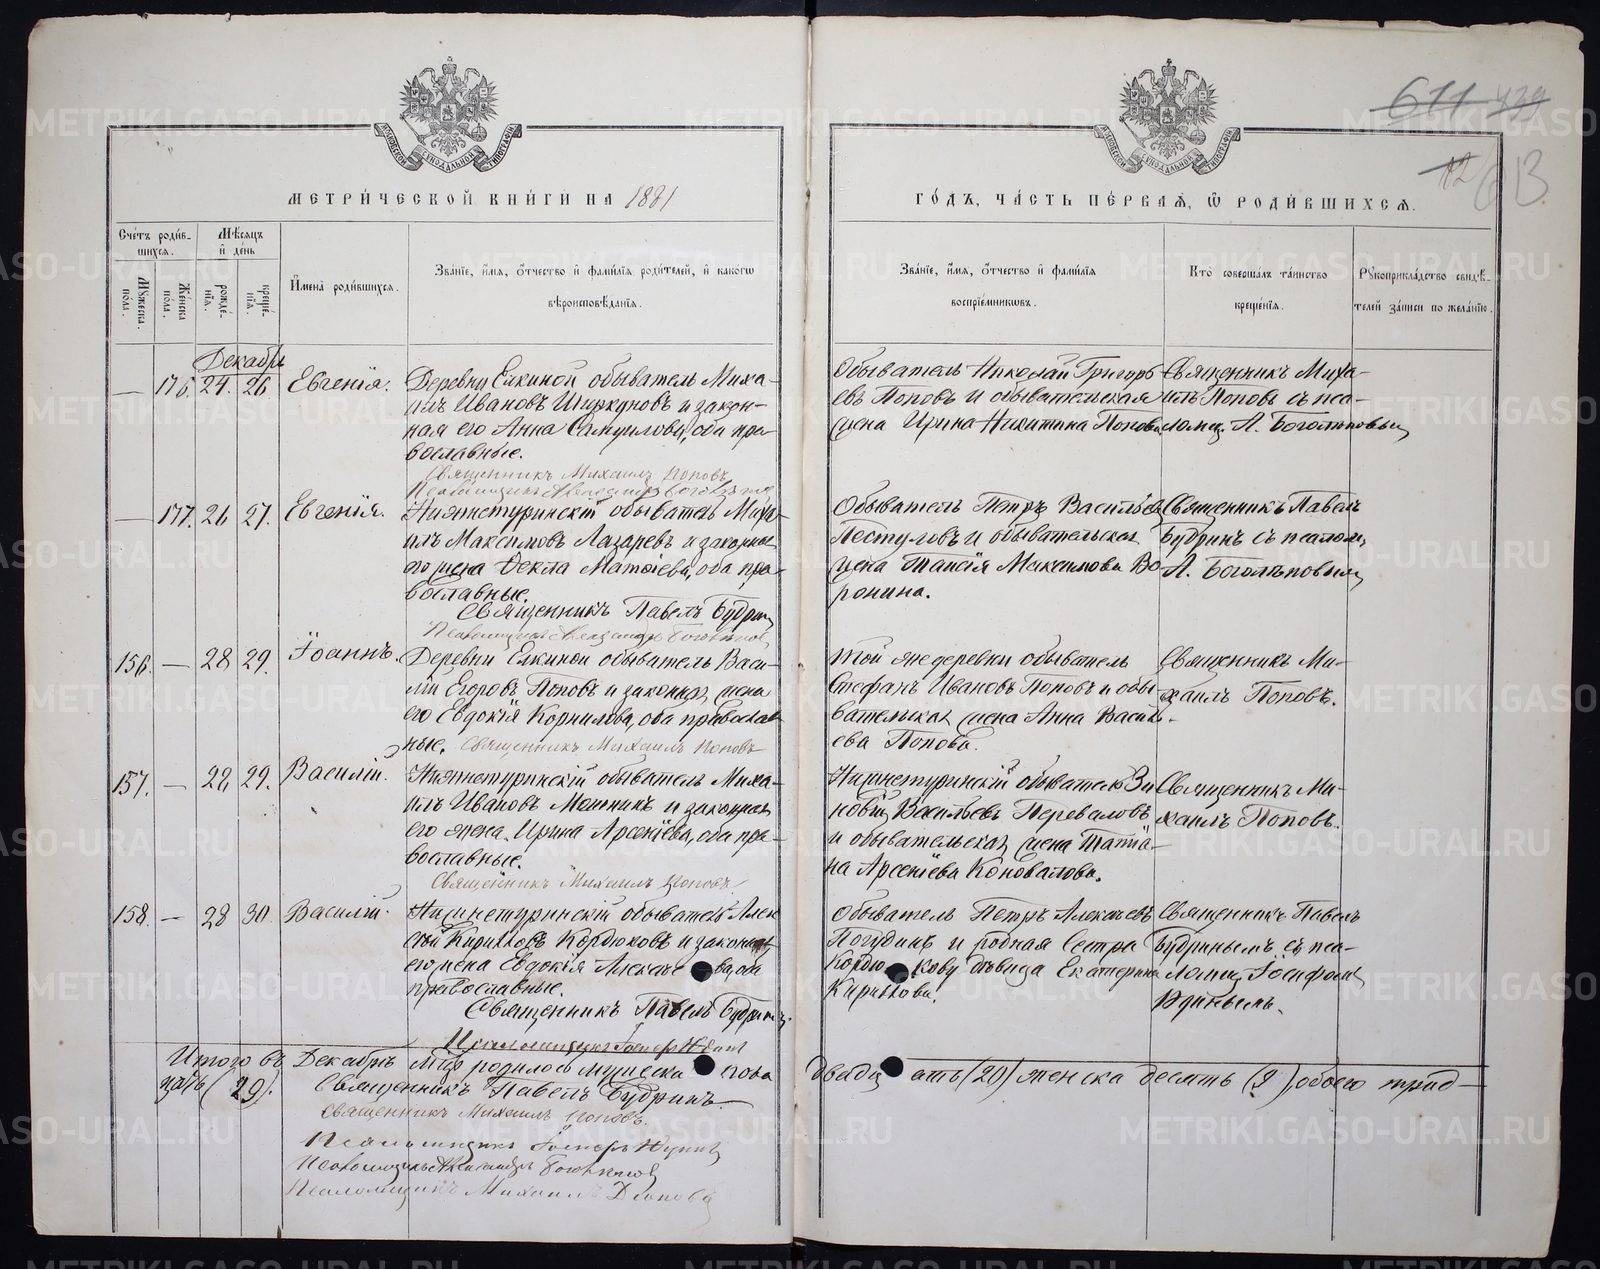 611 439
12 613
МЕТРИ́ЧЕСКОЙ КНИ́ГИ НА 1881
ГО́ДЪ, ЧА́СТЬ ПЕ́РВАѦ, Ѡ РОДИ́ВШИХСѦ.
Сче́тъ роди́в-
шихсѧ.
Мѣ́сѧцъ
и҆ де́нь
И҆мена̀ роди́вшихсѧ.
Зва́нїе, и҆́мѧ, ѻ҆́тчество и҆ фами́лїѧ роди́телей, и҆ како́гѡ
вѣроисповѣ́данїѧ.
Зва́нїе, и҆́мѧ, ѻ҆́тчество и҆ фами́лїѧ
воспрїе́мникѡвъ.
Кто̀ соверша́лъ та́инство
креще́нїѧ.
Рꙋкоприкла́дство свидѣ́-
телей за́писи по жела́нїю.
Мꙋ́жеска
по́ла.
Же́нска
по́ла.
рожде́-
нїѧ.
креще́-
нїѧ.
Декабрь
— 176. 24. 26. Евгенія.
Деревни Елкиной обыватель Миха-
илъ Ивановъ Ширкуновъ и закон-
ная его Анна Самуилова, оба пра-
вославные.
Священникъ Михаилъ Поповъ
Обыватель Николай Григорь-
евъ Поповъ и обывательская
жена Ирина Никитина Попова
Священникъ Миха-
илъ Поповъ съ пса-
ломщ. А. Боголѣповым
— 177. 26 27. Евгенія.
Нижнетуринскій обыватель Миха-
илъ Максимовъ Лазаревъ и законная
его жена Ѳекла Матѳіева, оба пра-
вославные.
Священникъ Павелъ Будрин
Обыватель Петръ Васильевъ
Пестуловъ и обывательская
жена Таисія Максимова Во-
ронина.
Священникъ Павелъ
Будринъ съ псалом.
А. Боголѣповым
156. — 28 29. Іоаннъ.
Деревни Елкиной обыватель Васи-
лій Егоровъ Поповъ и законная жена
его Евдокія Корнилова, оба православ-
ные. Священникъ Михаилъ Поповъ
Той же деревни обыватель
Стефанъ Ивановъ Поповъ и обы-
вательская жена Анна Василь-
ева Попова.
Священникъ Ми-
хаилъ Поповъ.
157. — 28 29. Василій.
Нижнетуринскій обыватель Миха-
илъ Ивановъ Мошникъ и законная
его жена Ирина Арсеніева, оба пра-
вославные.
Священникъ Михаилъ Поповъ
Нижнетуринскій обыватель Зи-
новій Васильевъ Переваловъ
и обывательская жена Татіа-
на Арсеніева Коновалова.
Священникъ Ми-
хаилъ Поповъ.
158. — 28 30. Василій.
Нижнетуринскій обыватель Алек-
сѣй Кирилловъ Кордюковъ и законная
его жена Евдокія Алексѣева, оба
православные.
Священникъ Павелъ Будринъ.
Обыватель Петръ Алексѣевъ
Погудинъ и родная сестра
Кордюкову дѣвица Екатерина
Кириллова.
Священникъ Павелъ
Будринымъ съ пса-
ломщ. Іосифомъ
Итого въ Декабрѣ мцѣ родилось мужеска пола двадцать (20) женска десять (9), обоего трид-
цать (29).
Священникъ Павелъ Будринъ
Священникъ Михаилъ Поповъ.
Псаломщикъ
Псаломщикъ Александръ Боголѣпов
Псаломщикъ Михаилъ